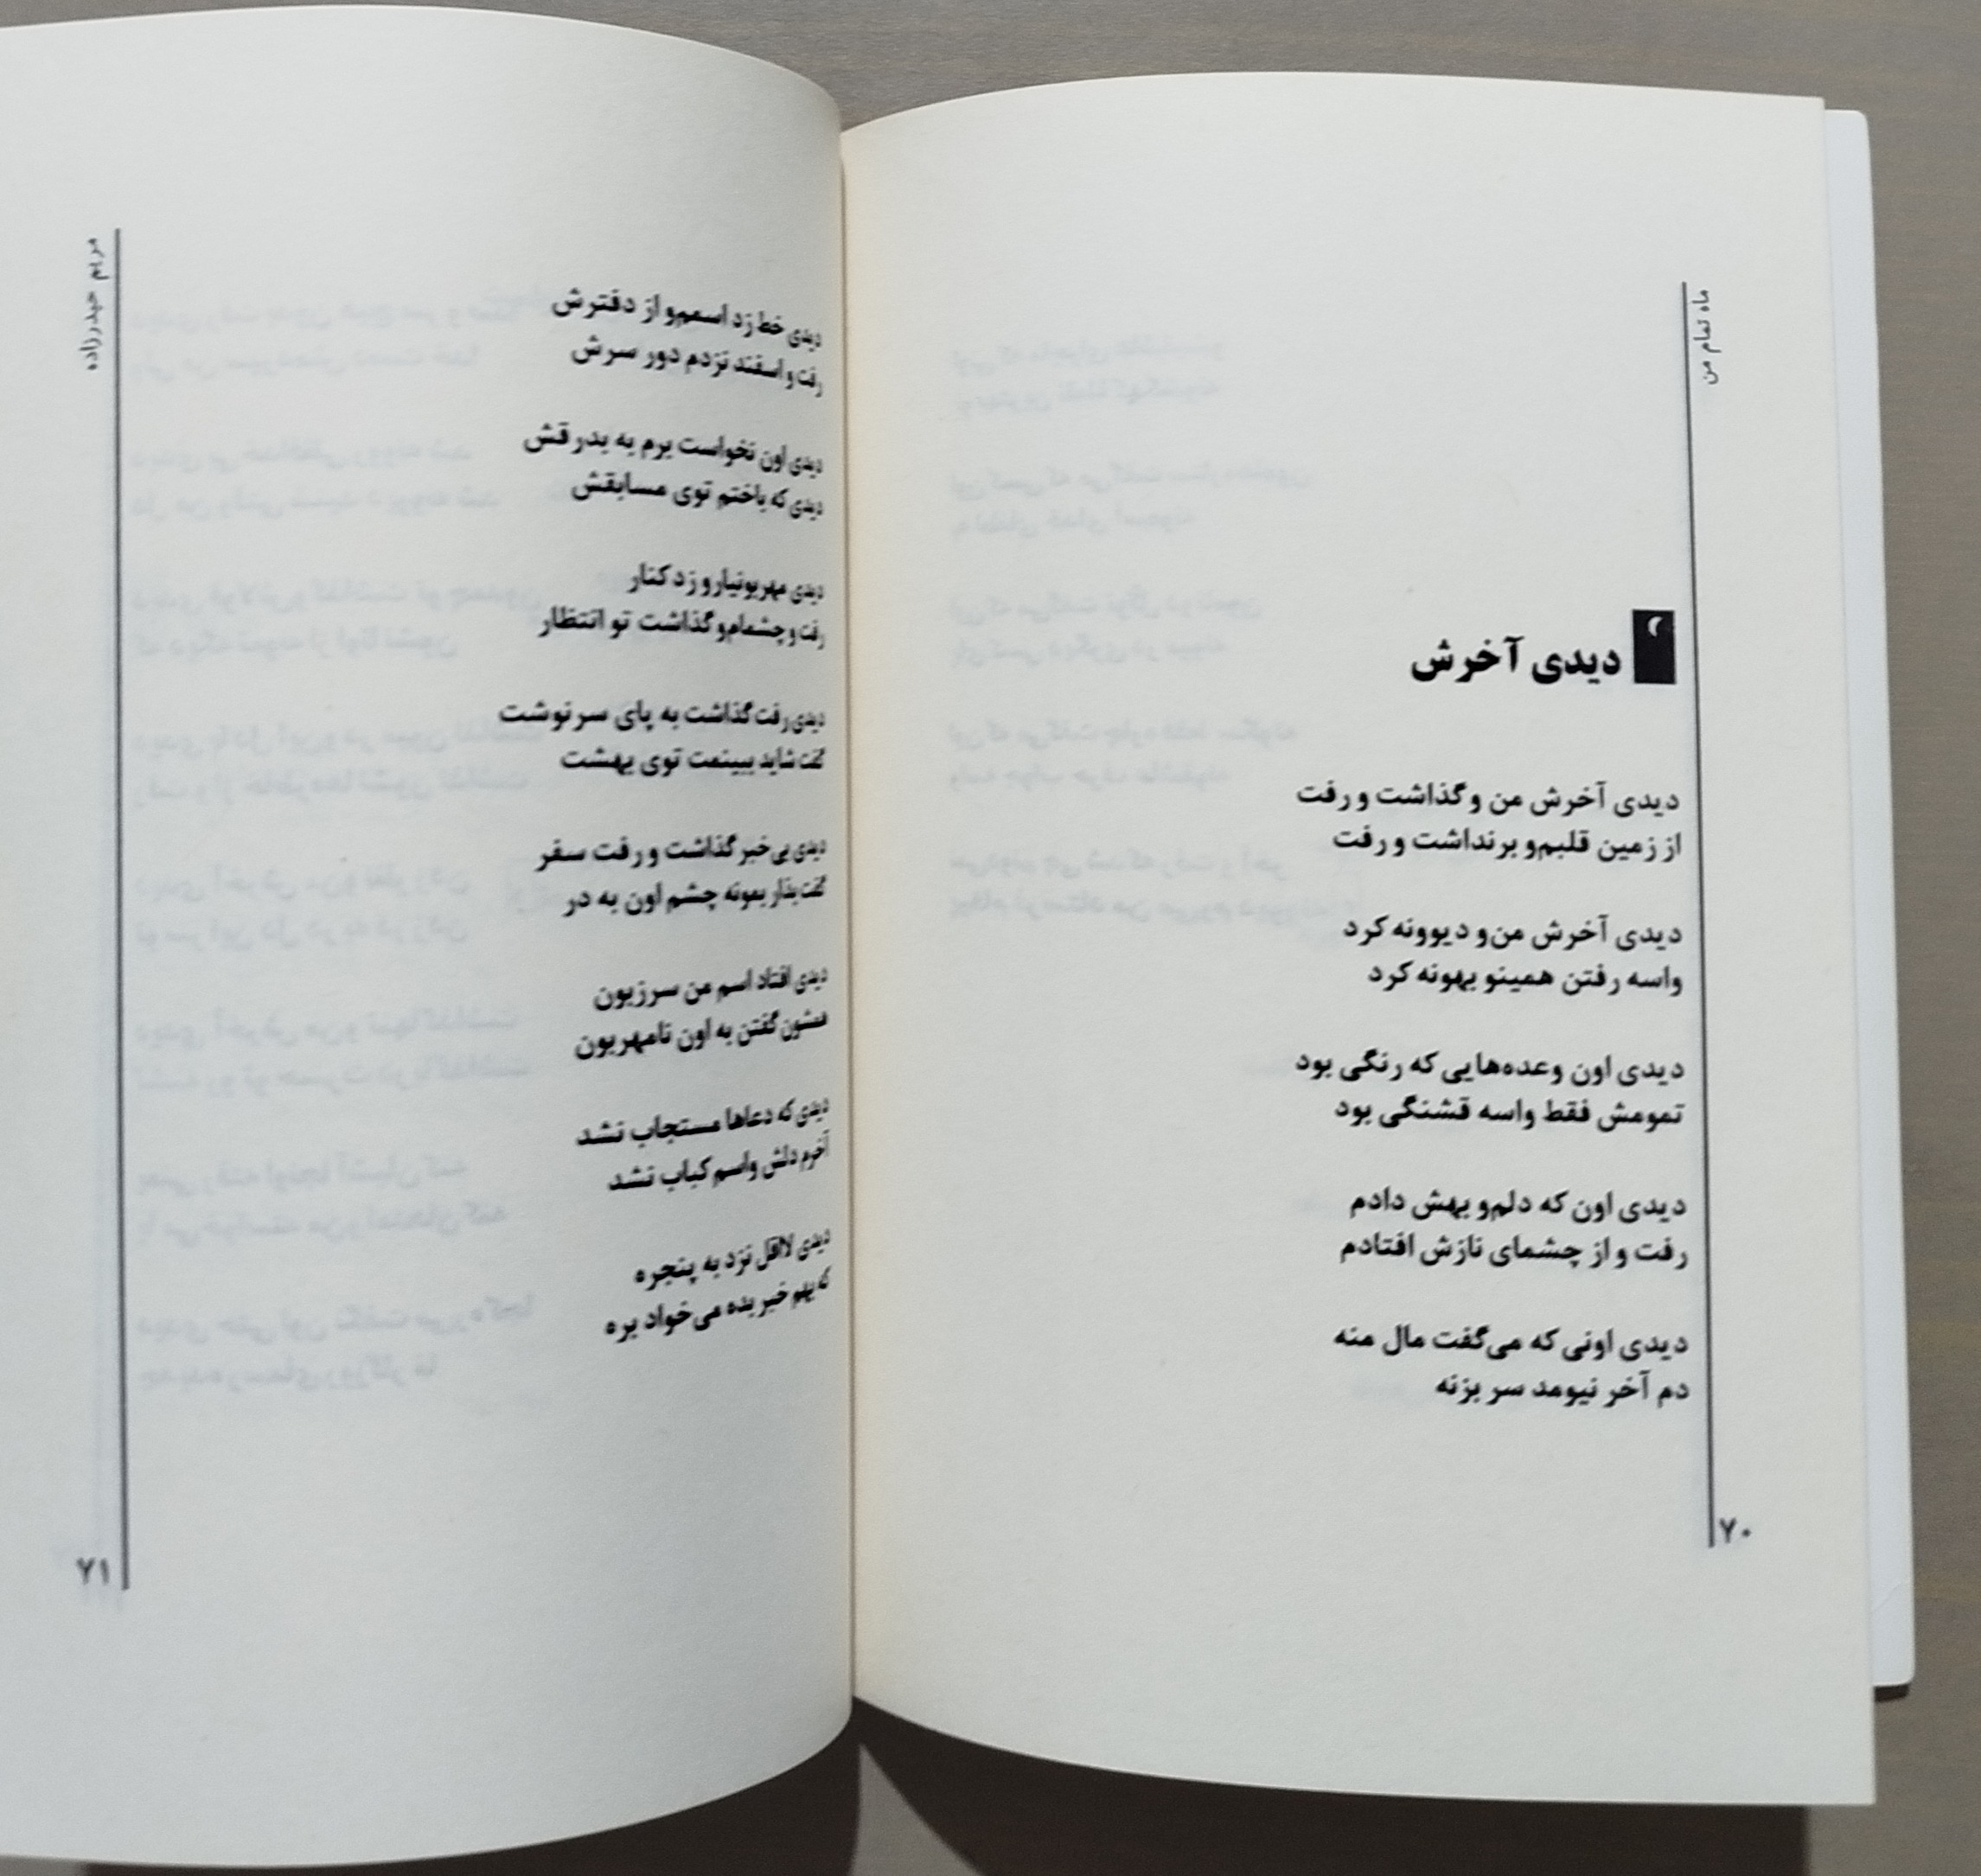 ماه تمام من
دیدی آخرش
دیدی آخرش من و گذاشت و رفت
از زمین قلبم‌و برنداشت و رفت
دیدی آخرش من‌و دیوونه کرد
واسه رفتن همینو بهونه کرد
دیدی اون وعده‌هایی که رنگی بود
تمومش فقط واسه قشنگی بود
دیدی اون که دلم‌و بهش دادم
رفت و از چشمای نازش افتادم
دیدی اونی که می‌گفت مال منه
دم آخر نیومد سر بزنه
۷۰
مریم حیدرزاده
دیدی خط زد اسمم‌و از دفترش
رفت و اسفند نزدم دور سرش
دیدی اون نخواست برم به بدرقش
دیدی که باختم توی مسابقش
دیدی مهربونیارو زد کنار
رفت و چشمام‌و گذاشت تو انتظار
دیدی رفت گذاشت به پای سرنوشت
گفت شاید ببینمت توی بهشت
دیدی بی‌خبر گذاشت و رفت سفر
گفت بذار بمونه چشم اون به در
دیدی افتاد اسم من سر زبون
همشون گفتن به اون نامهربون
دیدی که دعاها مستجاب نشد
آخرم دلش واسم کباب نشد
دیدی لااقل نزد به پنجره
که بهم خبر بده می‌خواد بره
۷۱